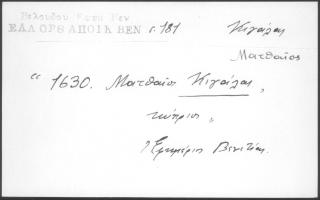 Βελούδου Ελλη Βεν
ΕΛΛ ΟΡΘ ΑΠΟΙΚ ΒΕΝ σ. 181 Κιγάλας
Ματθαῖος
"1630. Ματθαῖος Κιγάλας,
κύπριος"
Ἐφημέριοι Βενετίας